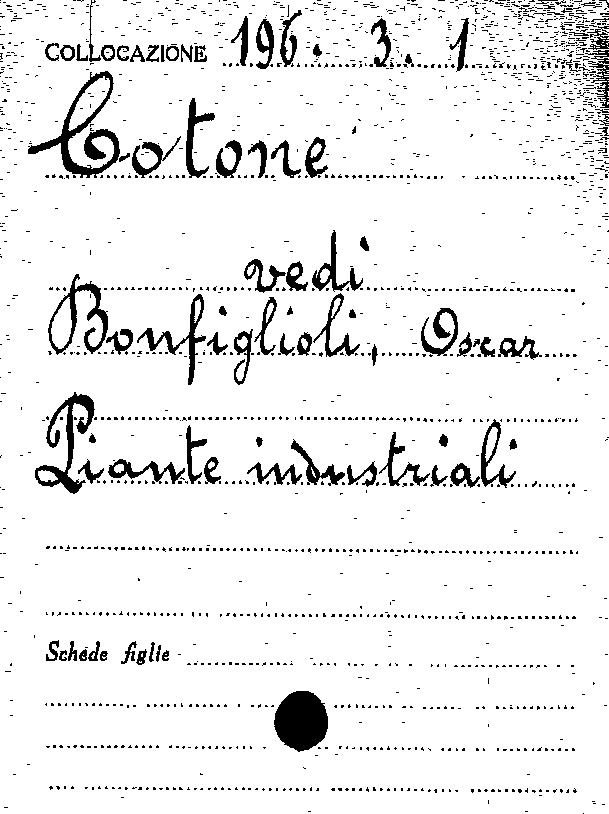 COLLOCAZIONE 196. 3. 1
Cotone
vedi
Bonfiglioli, Oscar
Piante industriali
Schede figlie